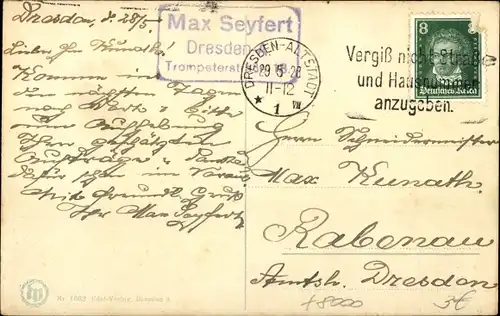 Dresden, d. 28/5.
Lieber Herr Kunath!
Komme in
den nächsten Tagen
nach dort u. bitte
um Aufhebung
Ihrer geschätzten
Aufträge u. danke
dafür schon im Voraus
Mit freundl. Gruß
Ihr Max Seyfert
Max Seyfert
Dresden
Trompeterstr.
DRESDEN-ALTSTADT
29.5.28
11-12
* 1 VIII
Vergiß nicht Straße
und Hausnummer
anzugeben.
8
Deutsches Reich
Herrn Schneidermeister
Max Kunath.
Rabenau
Amtsh. Dresden
Nr. 1682 Verlag, Dresden A.
+8000
3€